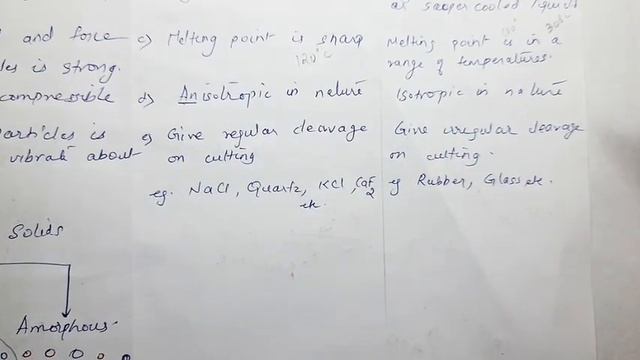 as super cooled liquid
and force
is strong.
compressible
particles is
vibrate about
c) Melting point is sharp
120°C
d) Anisotropic in nature
e) Give regular cleavage
on cutting
eg. NaCl, Quartz, KCl, CaF2
etc.
Melting point is in a
range of temperatures.
Isotropic in nature
Give irregular cleavage
on cutting.
eg Rubber, Glass etc.
Solids
Amorphous.